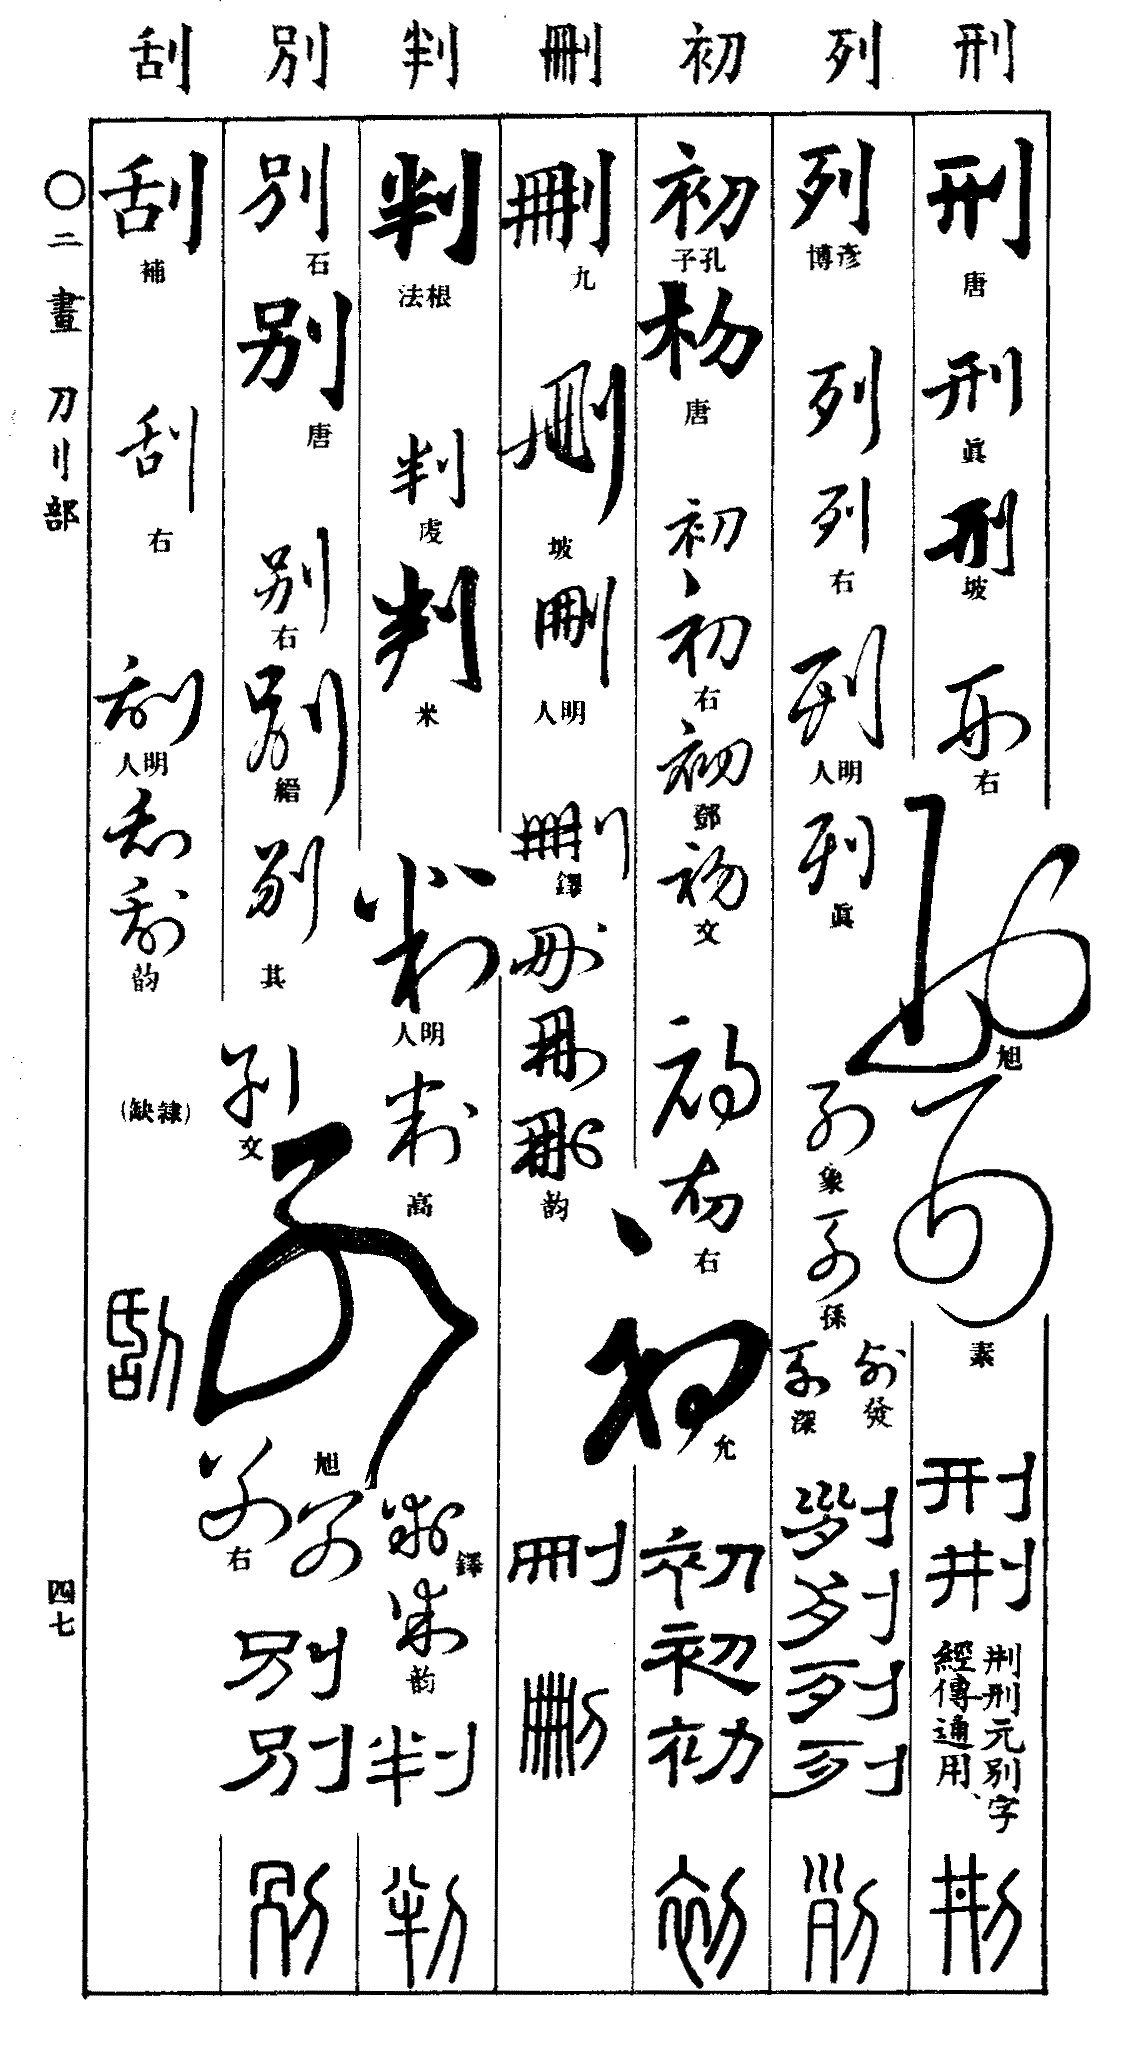 刑 列 初 刪 判 別 刮
刑
唐
刑
眞
刑
坡
刑
右
刑
旭
刑
素
刑
刑
荆刑元別字
經傳通用、
刑
列
彦博
列
列
右
列
明人
列
眞
列
象
列
孫
列
發
列
深
列
列
列
列
列
初
孔子
初
唐
初
初
右
初
鄧
初
文
初
初
右
初
允
初
初
初
初
刪
九
刪
坡
刪
明人
刪
鐸
刪
刪
刪
韵
刪
刪
判
根法
判
虔
判
米
判
明人
判
高
判
鐸
判
韵
判
判
別
石
別
唐
別
右
別
縉
別
其
別
文
別
旭
別
別
右
別
別
別
刮
補
刮
右
刮
明人
刮
刮
韵
(隸缺)
刮
〇二畫 刀刂部
四七